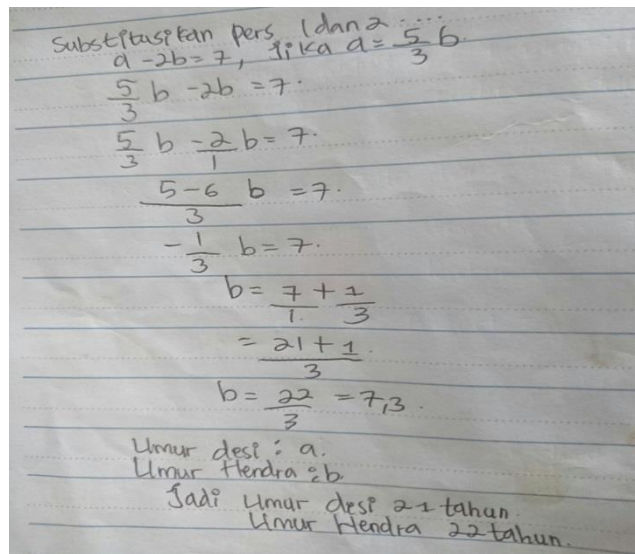 Substitusikan pers 1 dan 2 .....
a - 2b = 7, jika a = 5/3 b
5/3 b - 2b = 7.
5/3 b - 2/1 b = 7.
5-6/3 b = 7.
- 1/3 b = 7.
b = 7/1. + 1/3
= 21+1/3
b = 22/3 = 7,3.
Umur desi : a.
Umur Hendra : b
Jadi Umur desi 21 tahun
Umur Hendra 22 tahun.